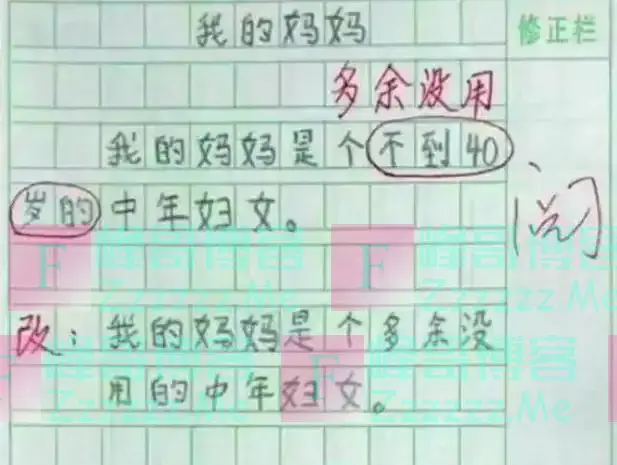 我的妈妈
修正栏
多余没用
我的妈妈是个不到40
岁的中年妇女。
阅
改：我的妈妈是个多余没
用的中年妇女。
F 峰哥博客
Zzzzzz.Me
F 峰哥博客
Zzzzzz.Me
F 峰哥博客
Zzzzzz.Me
F 峰哥博客
Zzzzzz.Me